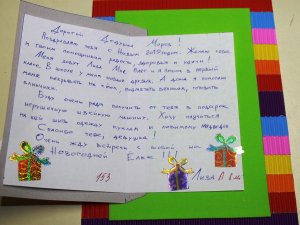 Дорогой Дедушка Мороз!
Поздравляю тебя с Новым 2019 годом. Желаю тебе
и твоим помощникам радости, здоровья и удачи!
Меня зовут Лиза. Мне 8 лет и я пошла в первый
класс. В школе у меня новые друзья. А дома я помогаю
маме накрывать на стол, подметать веником, готовить
блинчики.
Буду очень рада получить от тебя в подарок
игрушечную швейную машинку. Хочу научиться
на ней шить одежду куклам и любимому медведю
Спасибо тебе, дедушка!
Очень жду встречи с тобой на
Новогодней Ёлке!!!
153
Лиза П.